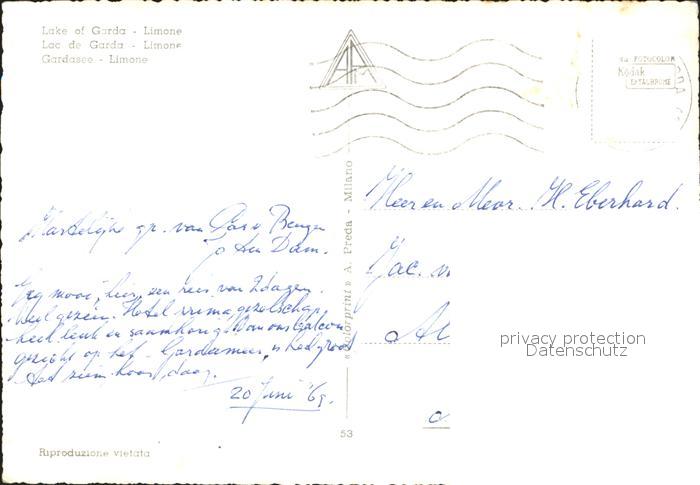 Lake of Garda - Limone
Lac de Garda - Limone
Gardasee - Limone
Kodak
EKTACHROME
FOTOCOLOR
Heer en Mevr. H. Eberhard.
Jac. v
Al
Hartelijke gr. van
en Dam.
Erg mooi, hier, een reis van 2 dagen.
Veel gezien. Hotel prima, gezelschap
heel leuk en saamhorig. Van ons balcon
gezicht op het Gardameer, is heel groot
tot ziens hoor, daag.
20 Juni '69.
"Kolorprint" A. Preda - Milano
53
Riproduzione vietata
privacy protection
Datenschutz